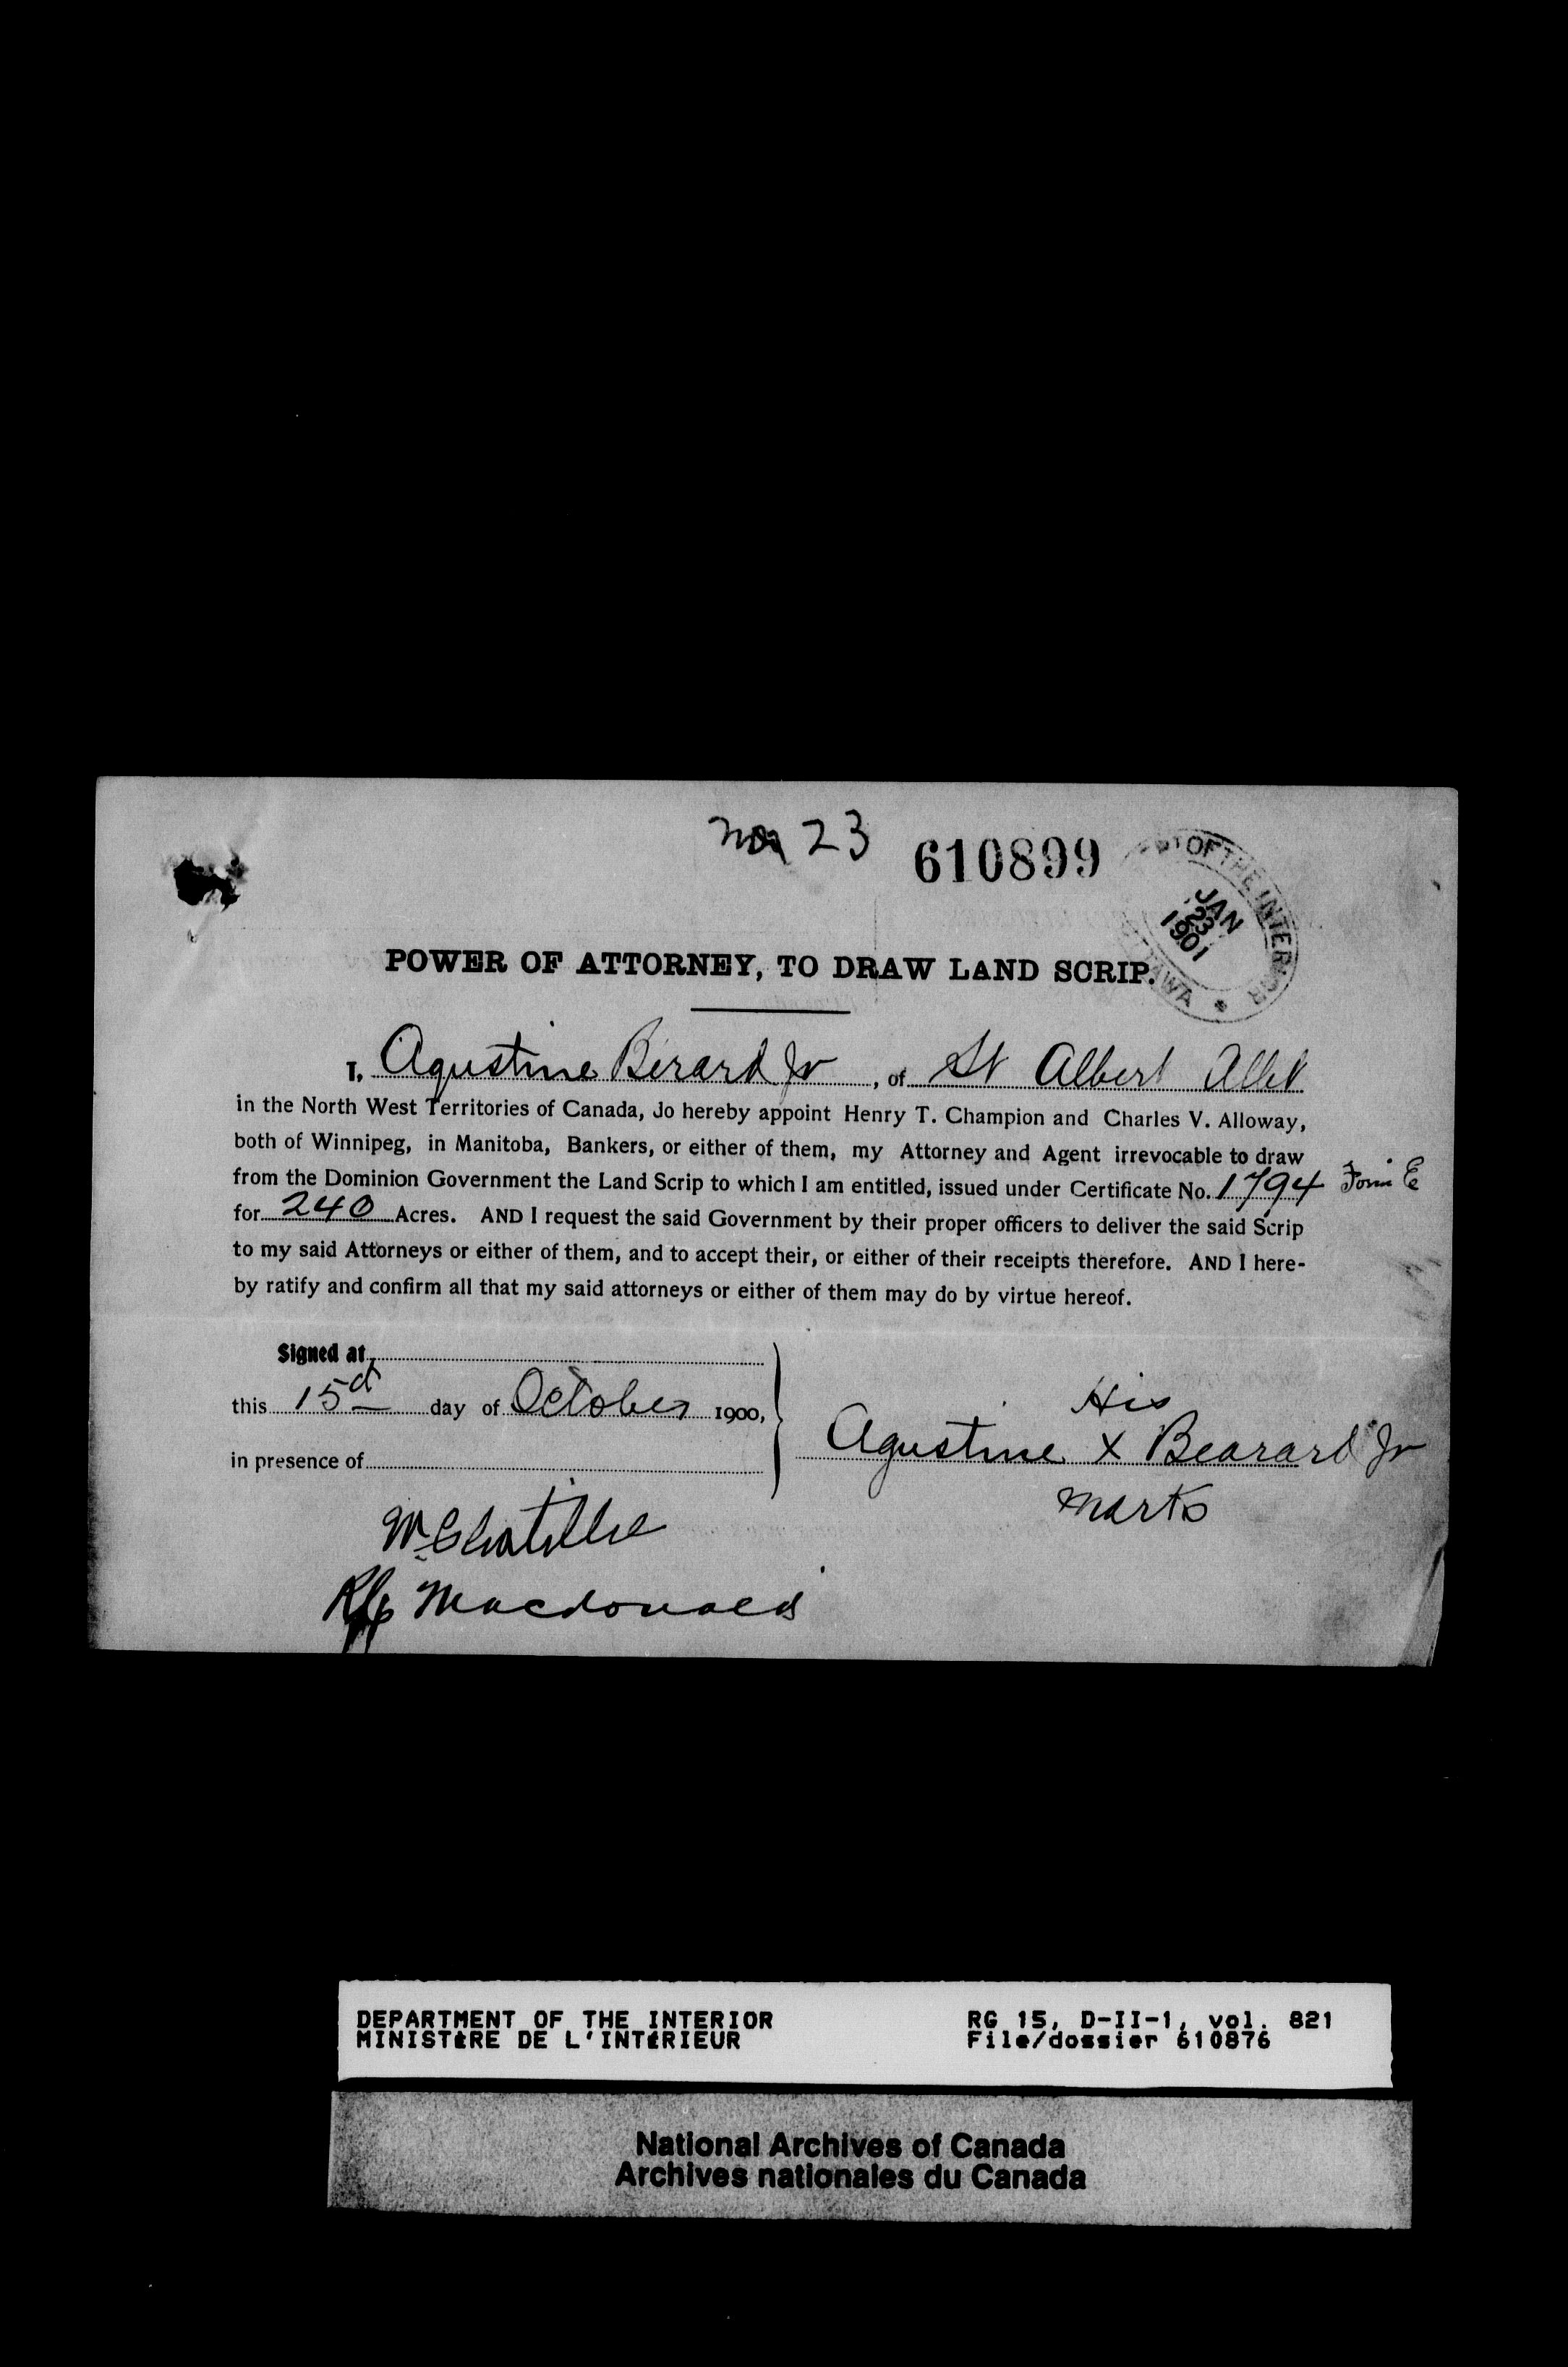 23 610899
T OF THE INTERIOR
JAN
23
1901
TAWA *
POWER OF ATTORNEY, TO DRAW LAND SCRIP.
I, Agustine Berard Jr, of St Albert
in the North West Territories of Canada, do hereby appoint Henry T. Champion and Charles V. Alloway,
both of Winnipeg, in Manitoba, Bankers, or either of them, my Attorney and Agent irrevocable to draw
from the Dominion Government the Land Scrip to which I am entitled, issued under Certificate No. 1794 Form E
for 240 Acres. AND I request the said Government by their proper officers to deliver the said Scrip
to my said Attorneys or either of them, and to accept their, or either of their receipts therefore. AND I here-
by ratify and confirm all that my said attorneys or either of them may do by virtue hereof.
Signed at
this 15d day of October 1900,
in presence of
His
Agustine X Bearard Jr
Marks
Macdonald
DEPARTMENT OF THE INTERIOR RG 15, D-II-1, vol. 821
MINISTÈRE DE L'INTÉRIEUR File/dossier 610876
National Archives of Canada
Archives nationales du Canada